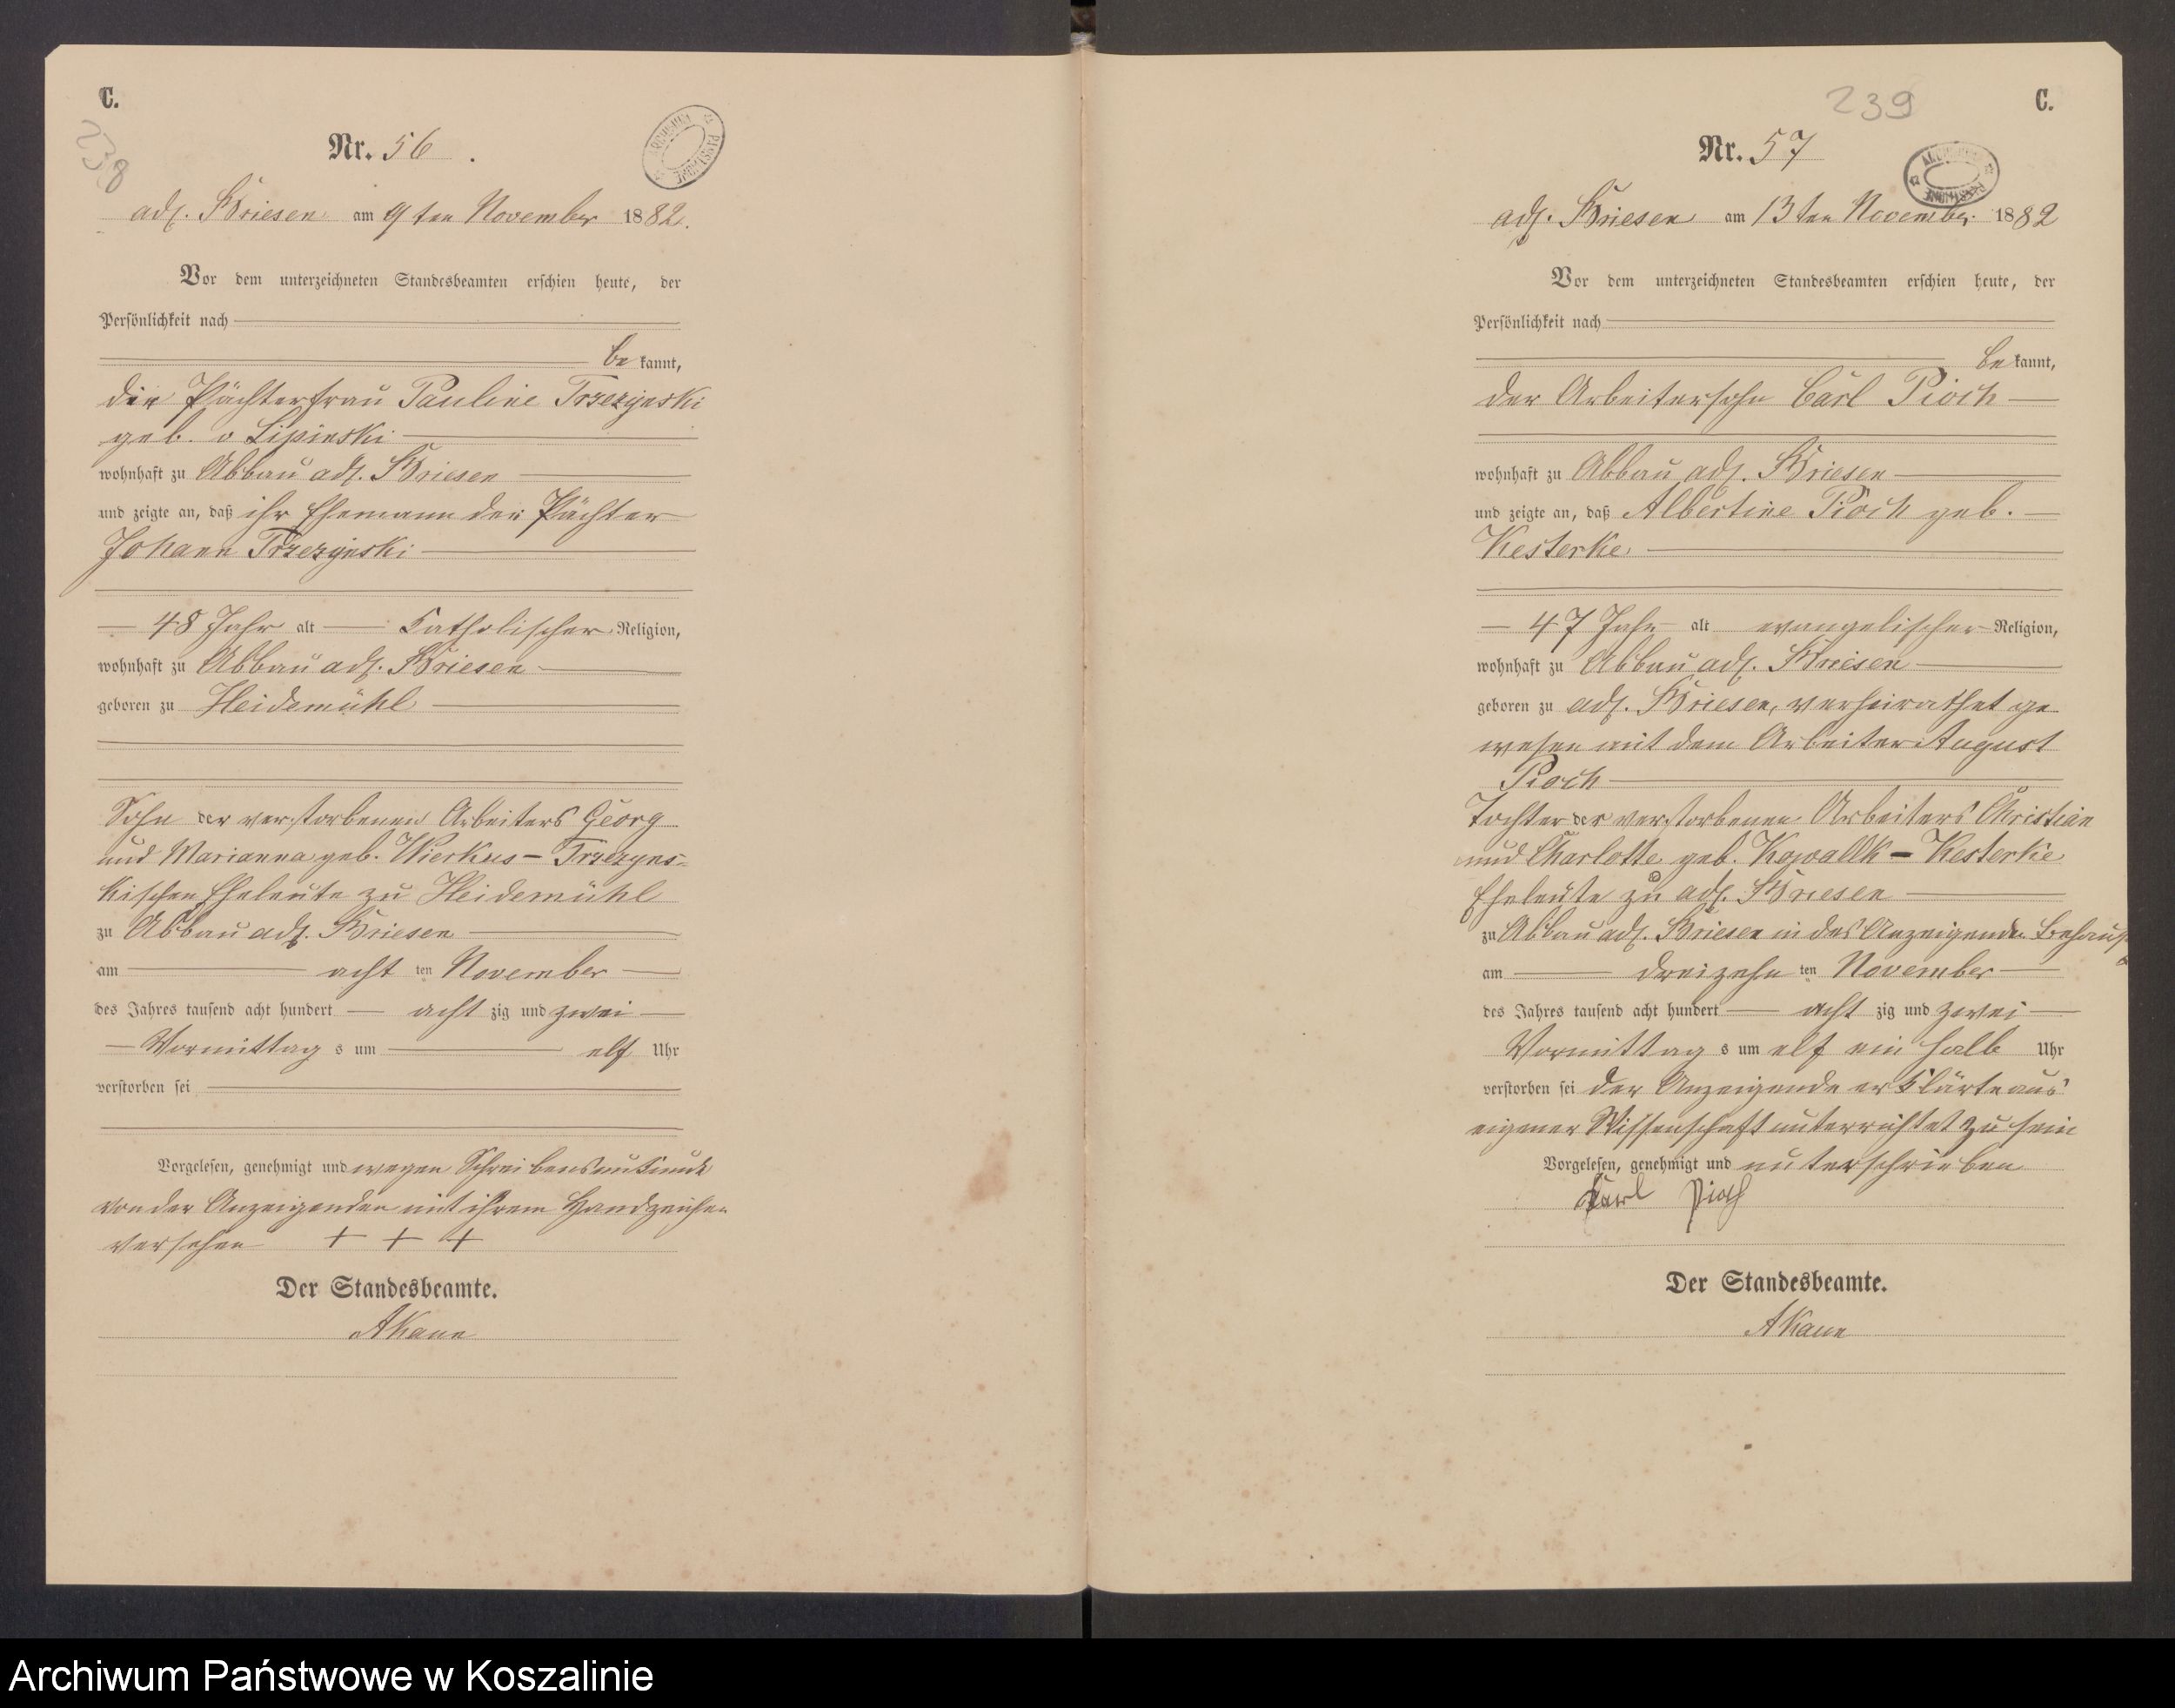 C.
238
Nr. 56.
adl. Briesen am 9ten November 1882.
Vor dem unterzeichneten Standesbeamten erschien heute, der
Persönlichkeit nach
bekannt,
die Pächterfrau Pauline Trzezynski
geb. v Lipinski
wohnhaft zu Abbau adl. Briesen
und zeigte an, daß ihr Ehemann der Pächter
Johann Trzezynski
48 Jahr alt katholischer Religion,
wohnhaft zu Abbau adl. Briesen
geboren zu Heidemühl
Sohn der verstorbenen Arbeiters Georg
und Marianna geb. Wierkus - Trzezyns-
kischen Eheleute zu Heidemühl
zu Abbau adl. Briesen
am acht ten November
des Jahres tausend acht hundert acht zig und zwei
Vormittag s um elf Uhr
verstorben sei
Vorgelesen, genehmigt und wegen Schreibensunkunde
von der Anzeigenden mit ihrem Handzeichen
versehen + + +
Der Standesbeamte.
AKane
239
C.
Nr. 57
adl. Briesen am 13ten November 1882
Vor dem unterzeichneten Standesbeamten erschien heute, der
Persönlichkeit nach
bekannt,
der Arbeitersohn Carl Pioch
wohnhaft zu Abbau adl. Briesen
und zeigte an, daß Albertine Pioch geb.
Kesterke
47 Jahr alt evangelischer Religion,
wohnhaft zu Abbau adl. Briesen
geboren zu adl. Briesen, verheirathet ge
wesen mit dem Arbeiter August
Pioch
Tochter der verstorbenen Arbeiters Christian
und Charlotte geb. Kowallk - Kesterke
Eheleute zu adl. Briesen
zu Abbau adl. Briesen in des Anzeigenden Behausg
am dreizehn ten November
des Jahres tausend acht hundert acht zig und zwei
Vormittag s um elf ein halb Uhr
verstorben sei der Anzeigende erklärte aus
eigener Wissenschaft unterrichtet zu sein
Vorgelesen, genehmigt und unterschrieben
Karl Pioch
Der Standesbeamte.
AKane
Archiwum Państwowe w Koszalinie